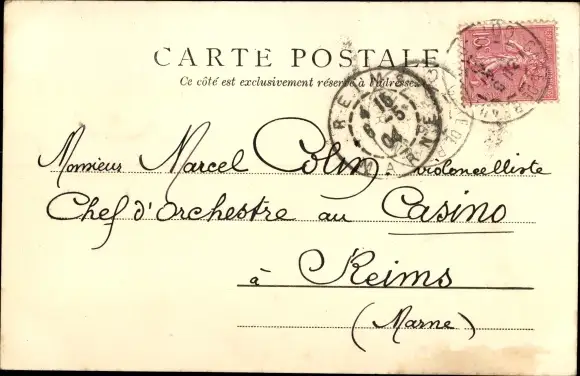 CARTE POSTALE
Ce côté est exclusivement réservé à l'adresse
REIMS
15
6 -5
04
MARNE
10
Monsieur Marcel Colin violoncelliste
Chef d'Orchestre au Casino
à Reims
(Marne)